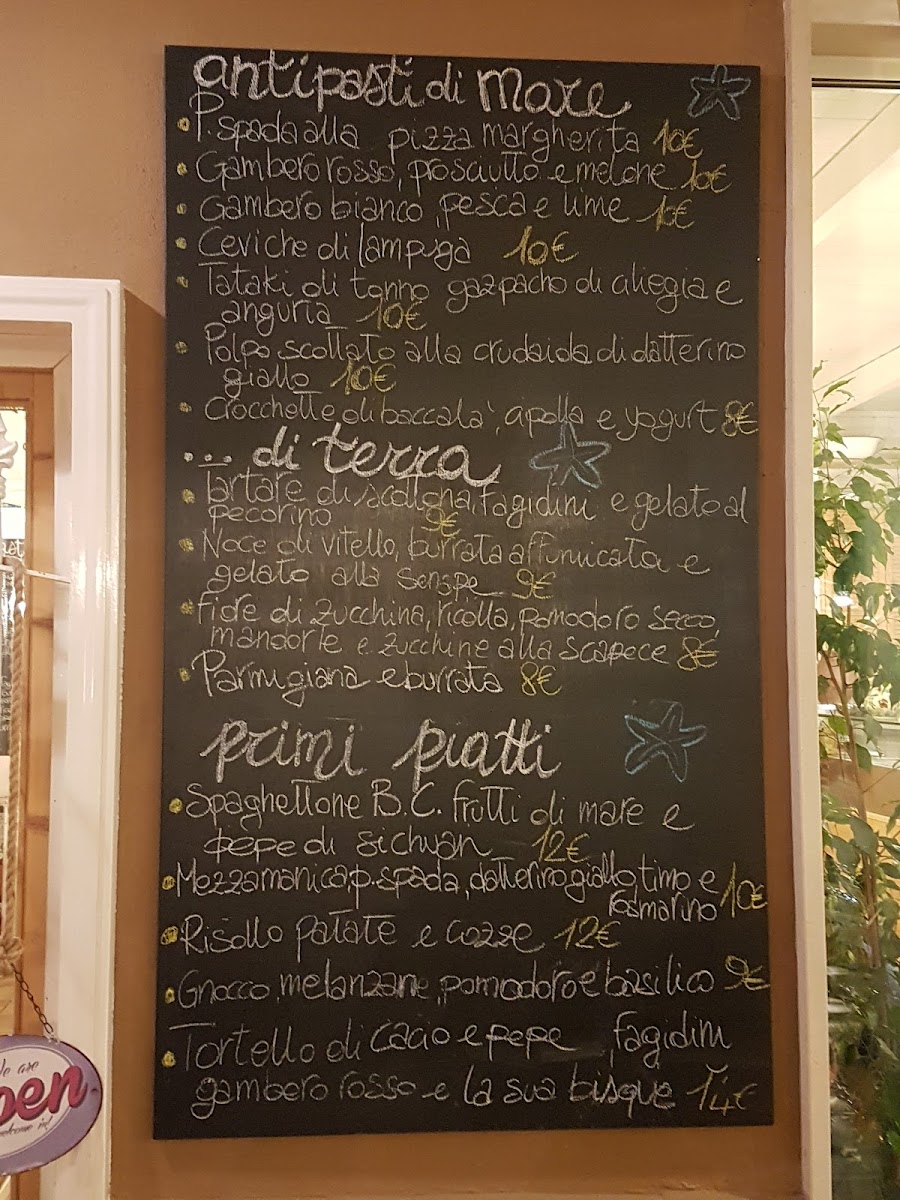 antipasti di Mare
P. spada alla pizza margherita 10€
Gambero rosso, prosciutto e melone 10€
Gambero bianco, pesca e lime 10€
Ceviche di lampuga 10€
Tataki di tonno gazpacho di ciliegia e
anguria 10€
Polpo scottato alla crudaida di datterino
giallo 10€
Crocchette di baccalà, cipolla e yogurt 8€
... di terra
Tartare di scottona, fagidini e gelato al
pecorino 9€
Noce di vitello, burrata affumicata e
gelato alla senspe 9€
Fiore di zucchina, ricotta, pomodoro secco,
mandorle e zucchine alla scapece 8€
Parmigiana e burrata 8€
primi piatti
Spaghettone B.C. frutti di mare e
pepe di sichuan 12€
Mezzamanica, p. spada, datterino giallo, timo e
rosmarino 10€
Risotto patate e cozze 12€
Gnocco, melanzane, pomodoro e basilico 9€
Tortello di cacio e pepe, fagidini
gambero rosso e la sua bisque 14€
We are
open
welcome in!